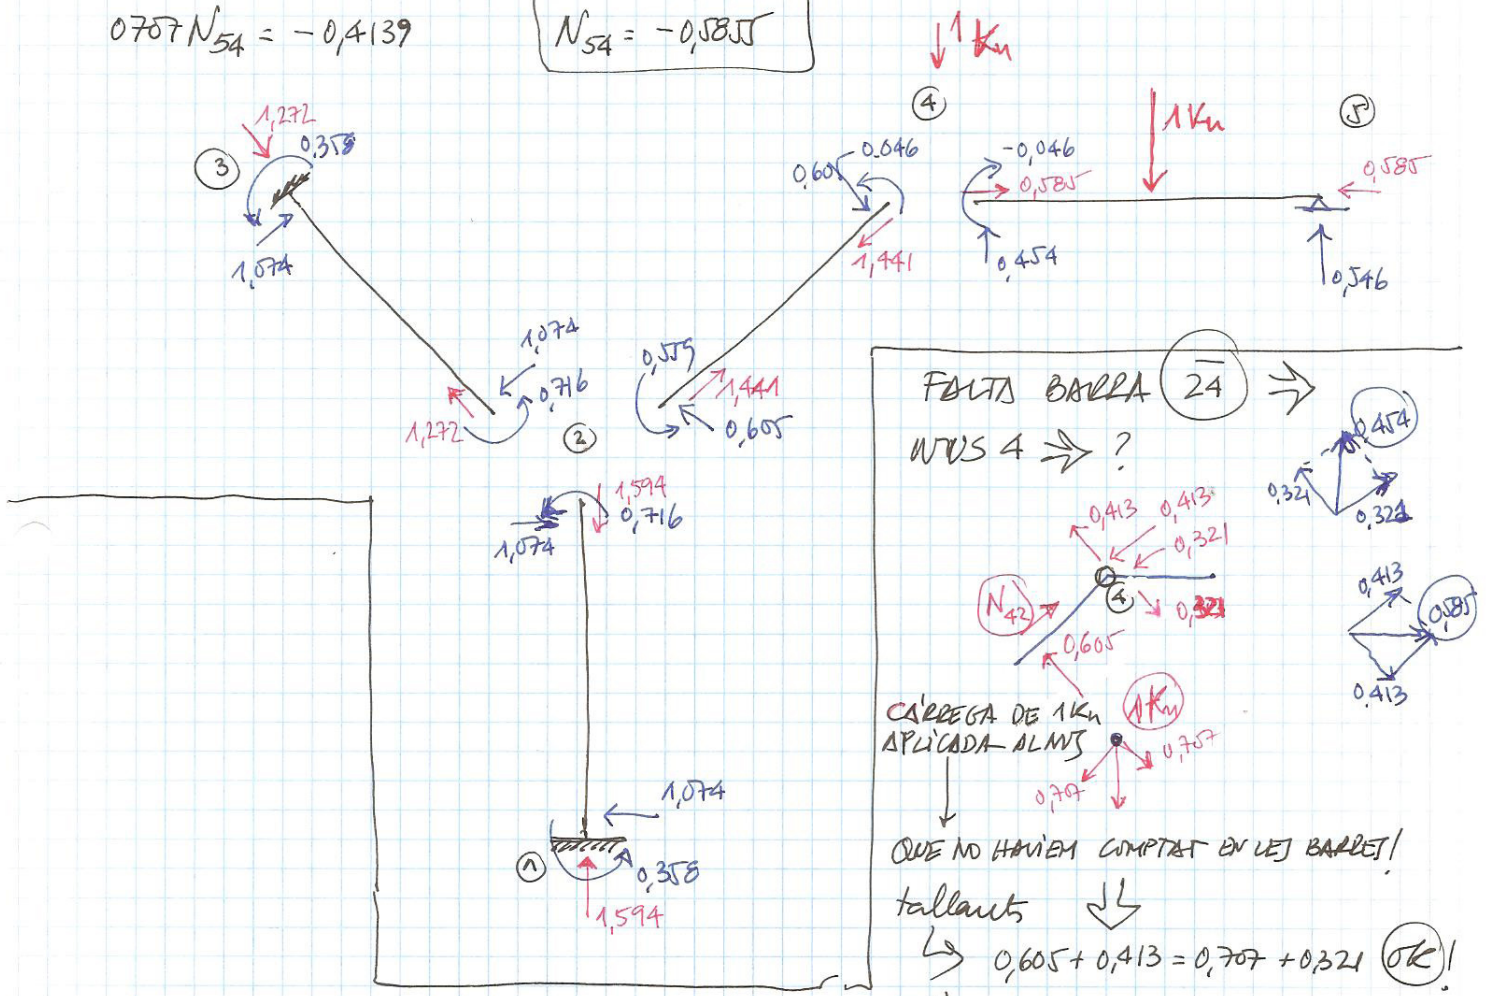 0707 N54 = -0,4139
N54 = -0,5855
1 Kn
4
1 Kn
5
1,272
0,358
3
1,074
0,605
0.046
1,441
-0,046
0,585
0,454
0,585
0,546
1,074
0,716
1,272
2
0,559
1,441
0,605
1,594
0,716
1,074
1,074
1
0,358
1,594
FALTA BARRA 24 ⇒
NUS 4 ⇒ ?
0,454
0,321
0,321
0,413
0,413
0,321
N42
4
0,321
0,605
0,413
0,585
0,413
CÀRREGA DE 1Kn
APLICADA AL NUS
1Kn
0,707
0,707
QUE NO HAVIEM COMPTAT EN LES BARRES!
tallants
0,605 + 0,413 = 0,707 + 0,321 OK!